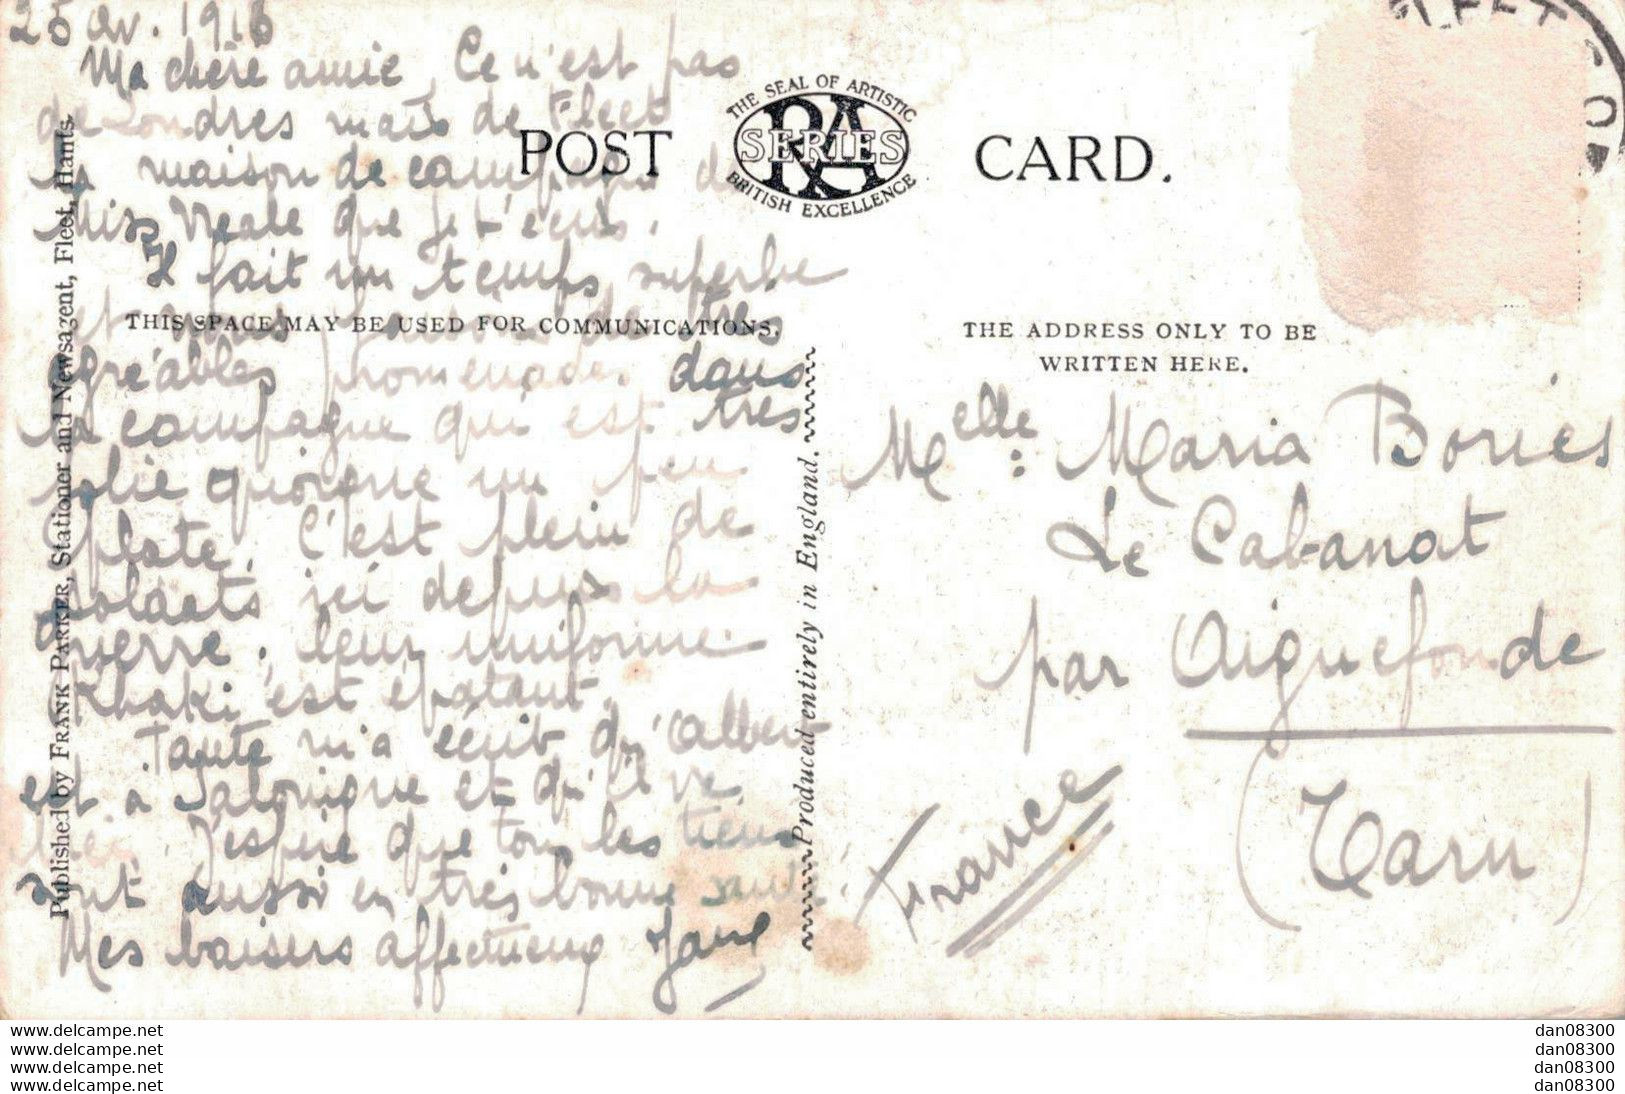 25 av. 1916
Ma chère amie, Ce n'est pas
de Londres mais de Fleet
la maison de campagne de
Miss Neale que je t'écris.
Il fait un temps superbe
et nous faisons de très
agréables promenades dans
la campagne qui est très
jolie quoique un peu
plate. C'est plein de
soldats ici depuis la
guerre. leur uniforme
Khaki est épatant.
Tante m'a écrit qu'Albert
est à Salonique et qu'il va
bien J'espère que tous les tiens
sont aussi en très bonne santé.
Mes baisers affectueux Jane
Published by FRANK PARKER, Stationer and Newsagent, Fleet, Hants.
POST CARD.
THE SEAL OF ARTISTIC
RA
SERIES
BRITISH EXCELLENCE
THIS SPACE MAY BE USED FOR COMMUNICATIONS.
Produced entirely in England.
FLEET
THE ADDRESS ONLY TO BE
WRITTEN HERE.
Melle: Maria Bories
Le Cabanat
par Aiguefonde
(Tarn)
France
www.delcampe.net
www.delcampe.net
www.delcampe.net
www.delcampe.net
dan08300
dan08300
dan08300
dan08300